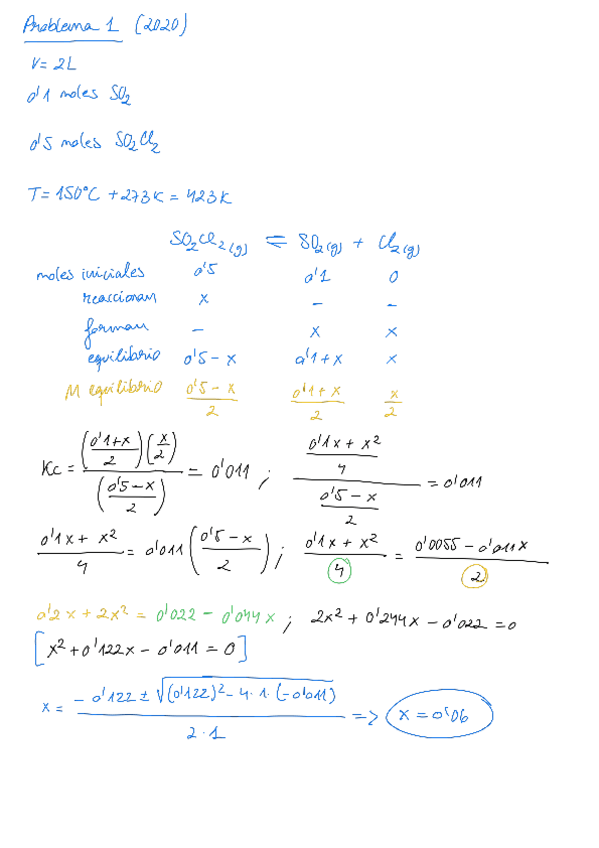 Problema 1 (2020)
V = 2L
0'1 moles SO₂
0'5 moles SO₂Cl₂
T = 150°C + 273K = 423K
SO₂Cl₂(g) ⇌ SO₂(g) + Cl₂(g)
moles iniciales 0'5 0'1 0
reaccionan x - -
forman - x x
equilibrio 0'5 - x 0'1 + x x
M equilibrio (0'5 - x)/2 (0'1 + x)/2 x/2
Kc = ((0'1+x)/2)(x/2) / ((0'5 - x)/2) = 0'011 ; ((0'1x + x²)/4) / ((0'5 - x)/2) = 0'011
(0'1x + x²)/4 = 0'011 ((0'5 - x)/2) ; (0'1x + x²)/4 = (0'0055 - 0'011x)/2
0'2x + 2x² = 0'022 - 0'044x ; 2x² + 0'244x - 0'022 = 0
[x² + 0'122x - 0'011 = 0]
x = (-0'122 ± √((0'122)² - 4·1·(-0'011))) / (2·1) => x = 0'06